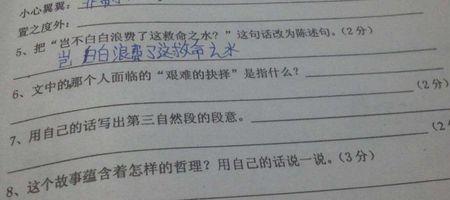 小心翼翼：
置之度外：
5、把“岂不白白浪费了这救命之水？”这句话改为陈述句。(2分)
岂 白白浪费了这救命之水
6、文中的那个人面临的“艰难的抉择”是指什么？
(2分)
7、用自己的话写出第三自然段的段意。
(2
8、这个故事蕴含着怎样的哲理？用自己的话说一说。(3分)